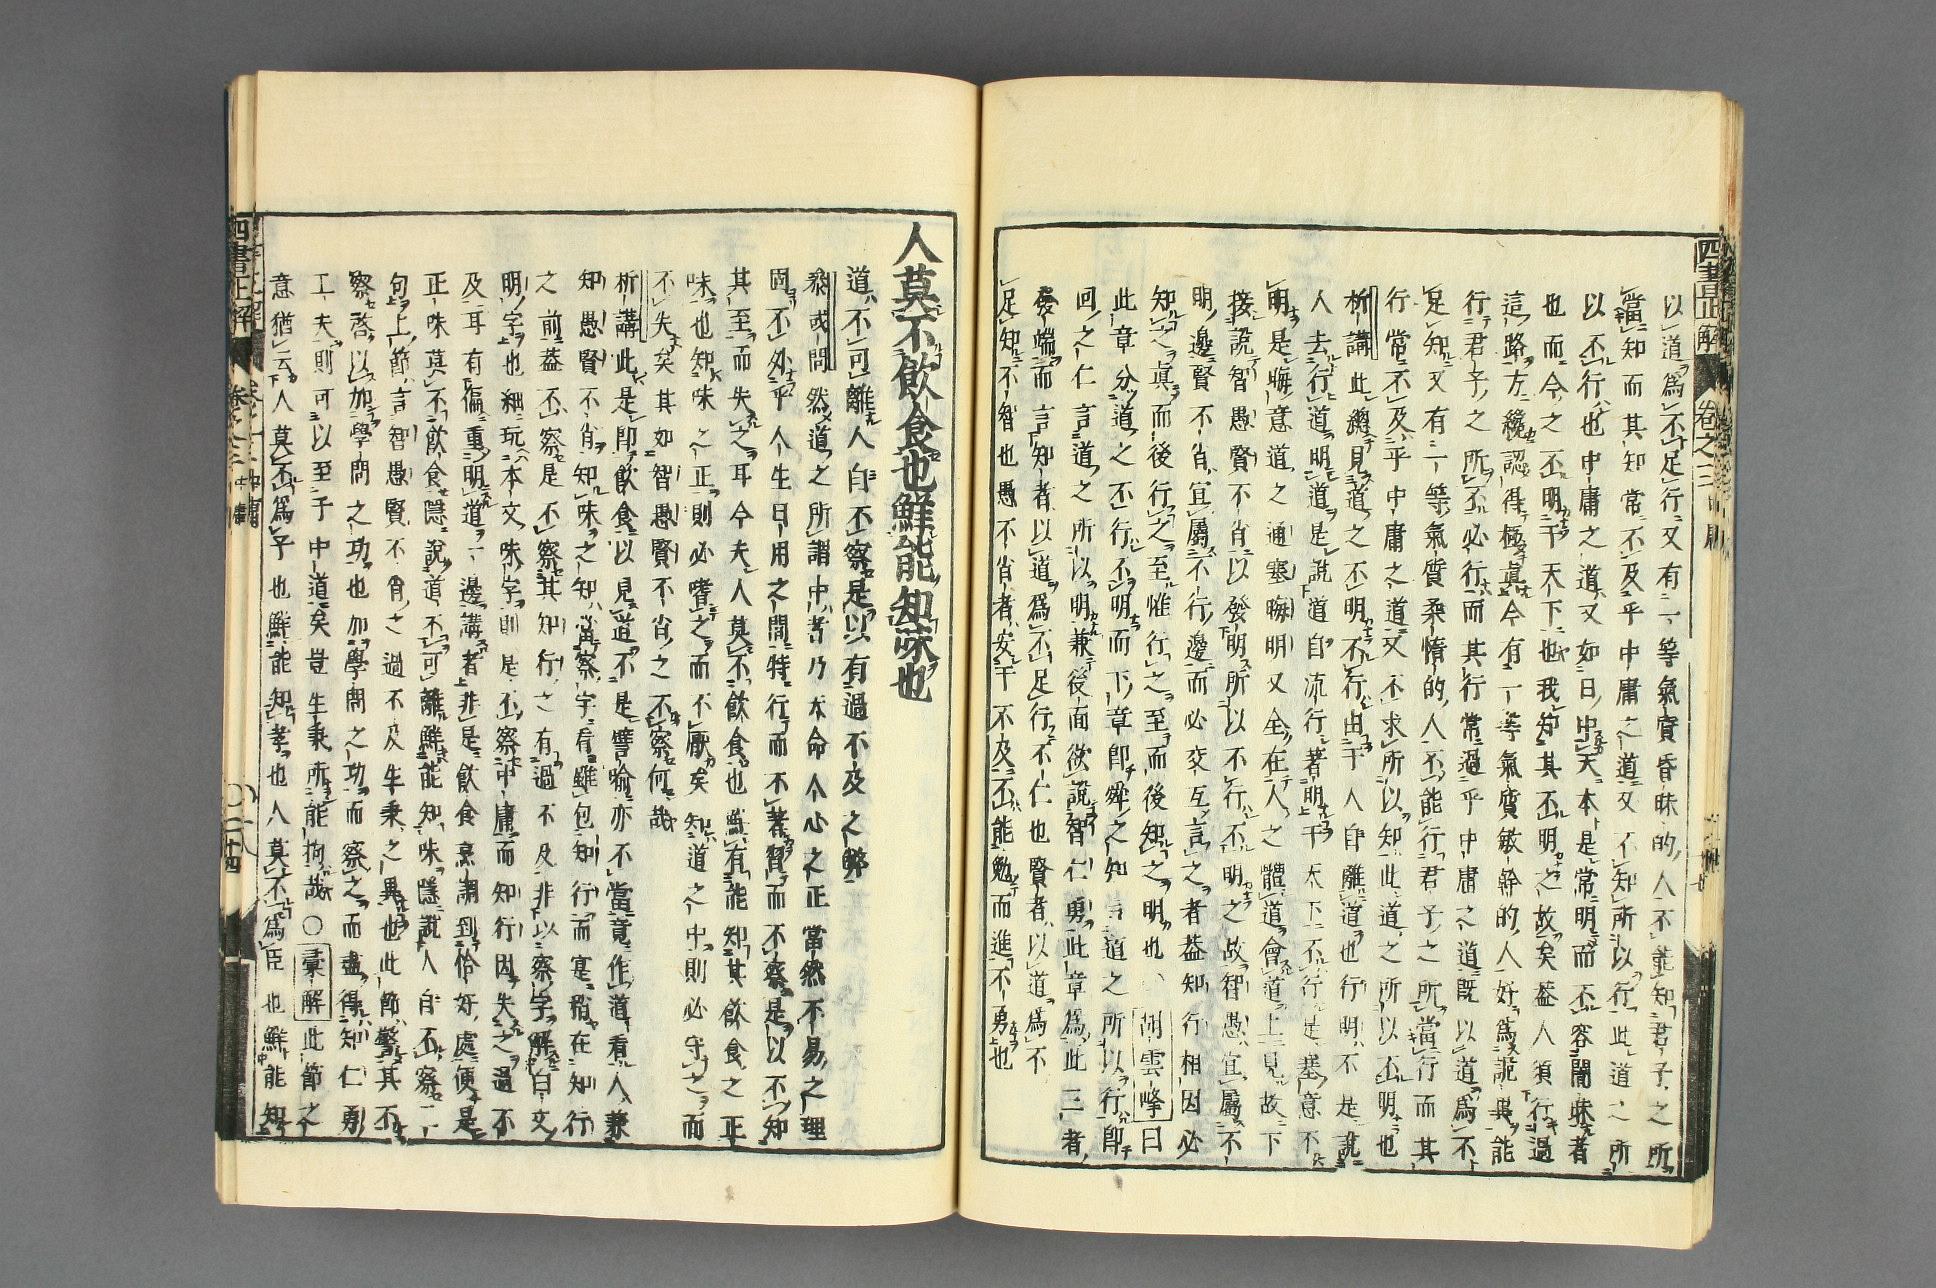 四書正解 卷之三 中庸
以道爲不足行又有一等氣質昏昧的人不能知君子之所
當知而其知常不及乎中庸之道又不知所以行此道之所
以不行也中庸之道又如日中天本是常明而不容闇昧者
也而今之不明于天下也我知其不明之故矣葢人須行過
這路方纔認得極眞今有一等氣質敏幹的人好爲詭異能
行君子之所不必行而其行常過乎中庸之道既以道爲不
足知又有一等氣質柔惰的人不能行君子之所當行而其
行常不及乎中庸之道又不求所以知此道之所以不明也
析講此總見道之不明不行由于人自離道也行明不是說
人去行道明道是說道自流行著明于天下不行是塞意不
明是晦意道之通塞晦明又全在人之體道會道上見故下
接說智愚賢不肖以發明所以不行不明之故智愚宜屬不
明邊賢不肖宜屬不行邊而必交互言之者葢知行相因必
知之眞而後行之至惟行之至而後知之明也 胡雲峰曰
此章分道之不行不明而下章即舜之知言道之所以行即
回之仁言道之所以明兼後面欲說智仁勇此章爲此三者
發端而言知者以道爲不足行不仁也賢者以道爲不
足知不智也愚不肖者安于不及不能勉而進不勇也
人莫不飲食也鮮能知味也
道不可離人自不察是以有過不及之弊
叅或問然道之所謂中者乃天命人心之正當然不易之理
固不外乎人生日用之間特行而不著習而不察是以不知
其至而失之耳今夫人莫不飲食也鮮有能知其飲食之正
味也知味之正則必嗜之而不厭矣知道之中則必守之而
不失矣其如智愚賢不肖之不察何哉
析講此是即飲食以見道不是譬喻亦不當竟作道看人兼
知愚賢不肖知味之知當察字看雖包知行而寔指在知行
之前葢不察是不察其知行之有過不及非以察字解白文
明字也細玩本文味字則是不察中庸而知行因失之過不
及耳有偏重明道一邊講者非是飲食烹調到恰好處便是
正味莫不飲食隱說道不可離鮮能知味隱說人自不察二
句上節言智愚賢不肖之過不及生秉之異也此節警其不
察啓以加學問之功也加學問之功而察之而盡得知仁勇
工夫則可以至于中道矣豈生秉所能拘哉○彙解此節之
意猶云人莫不爲子也鮮能知孝也人莫不爲臣也鮮能知
四書正解 卷之三 中庸 二十四